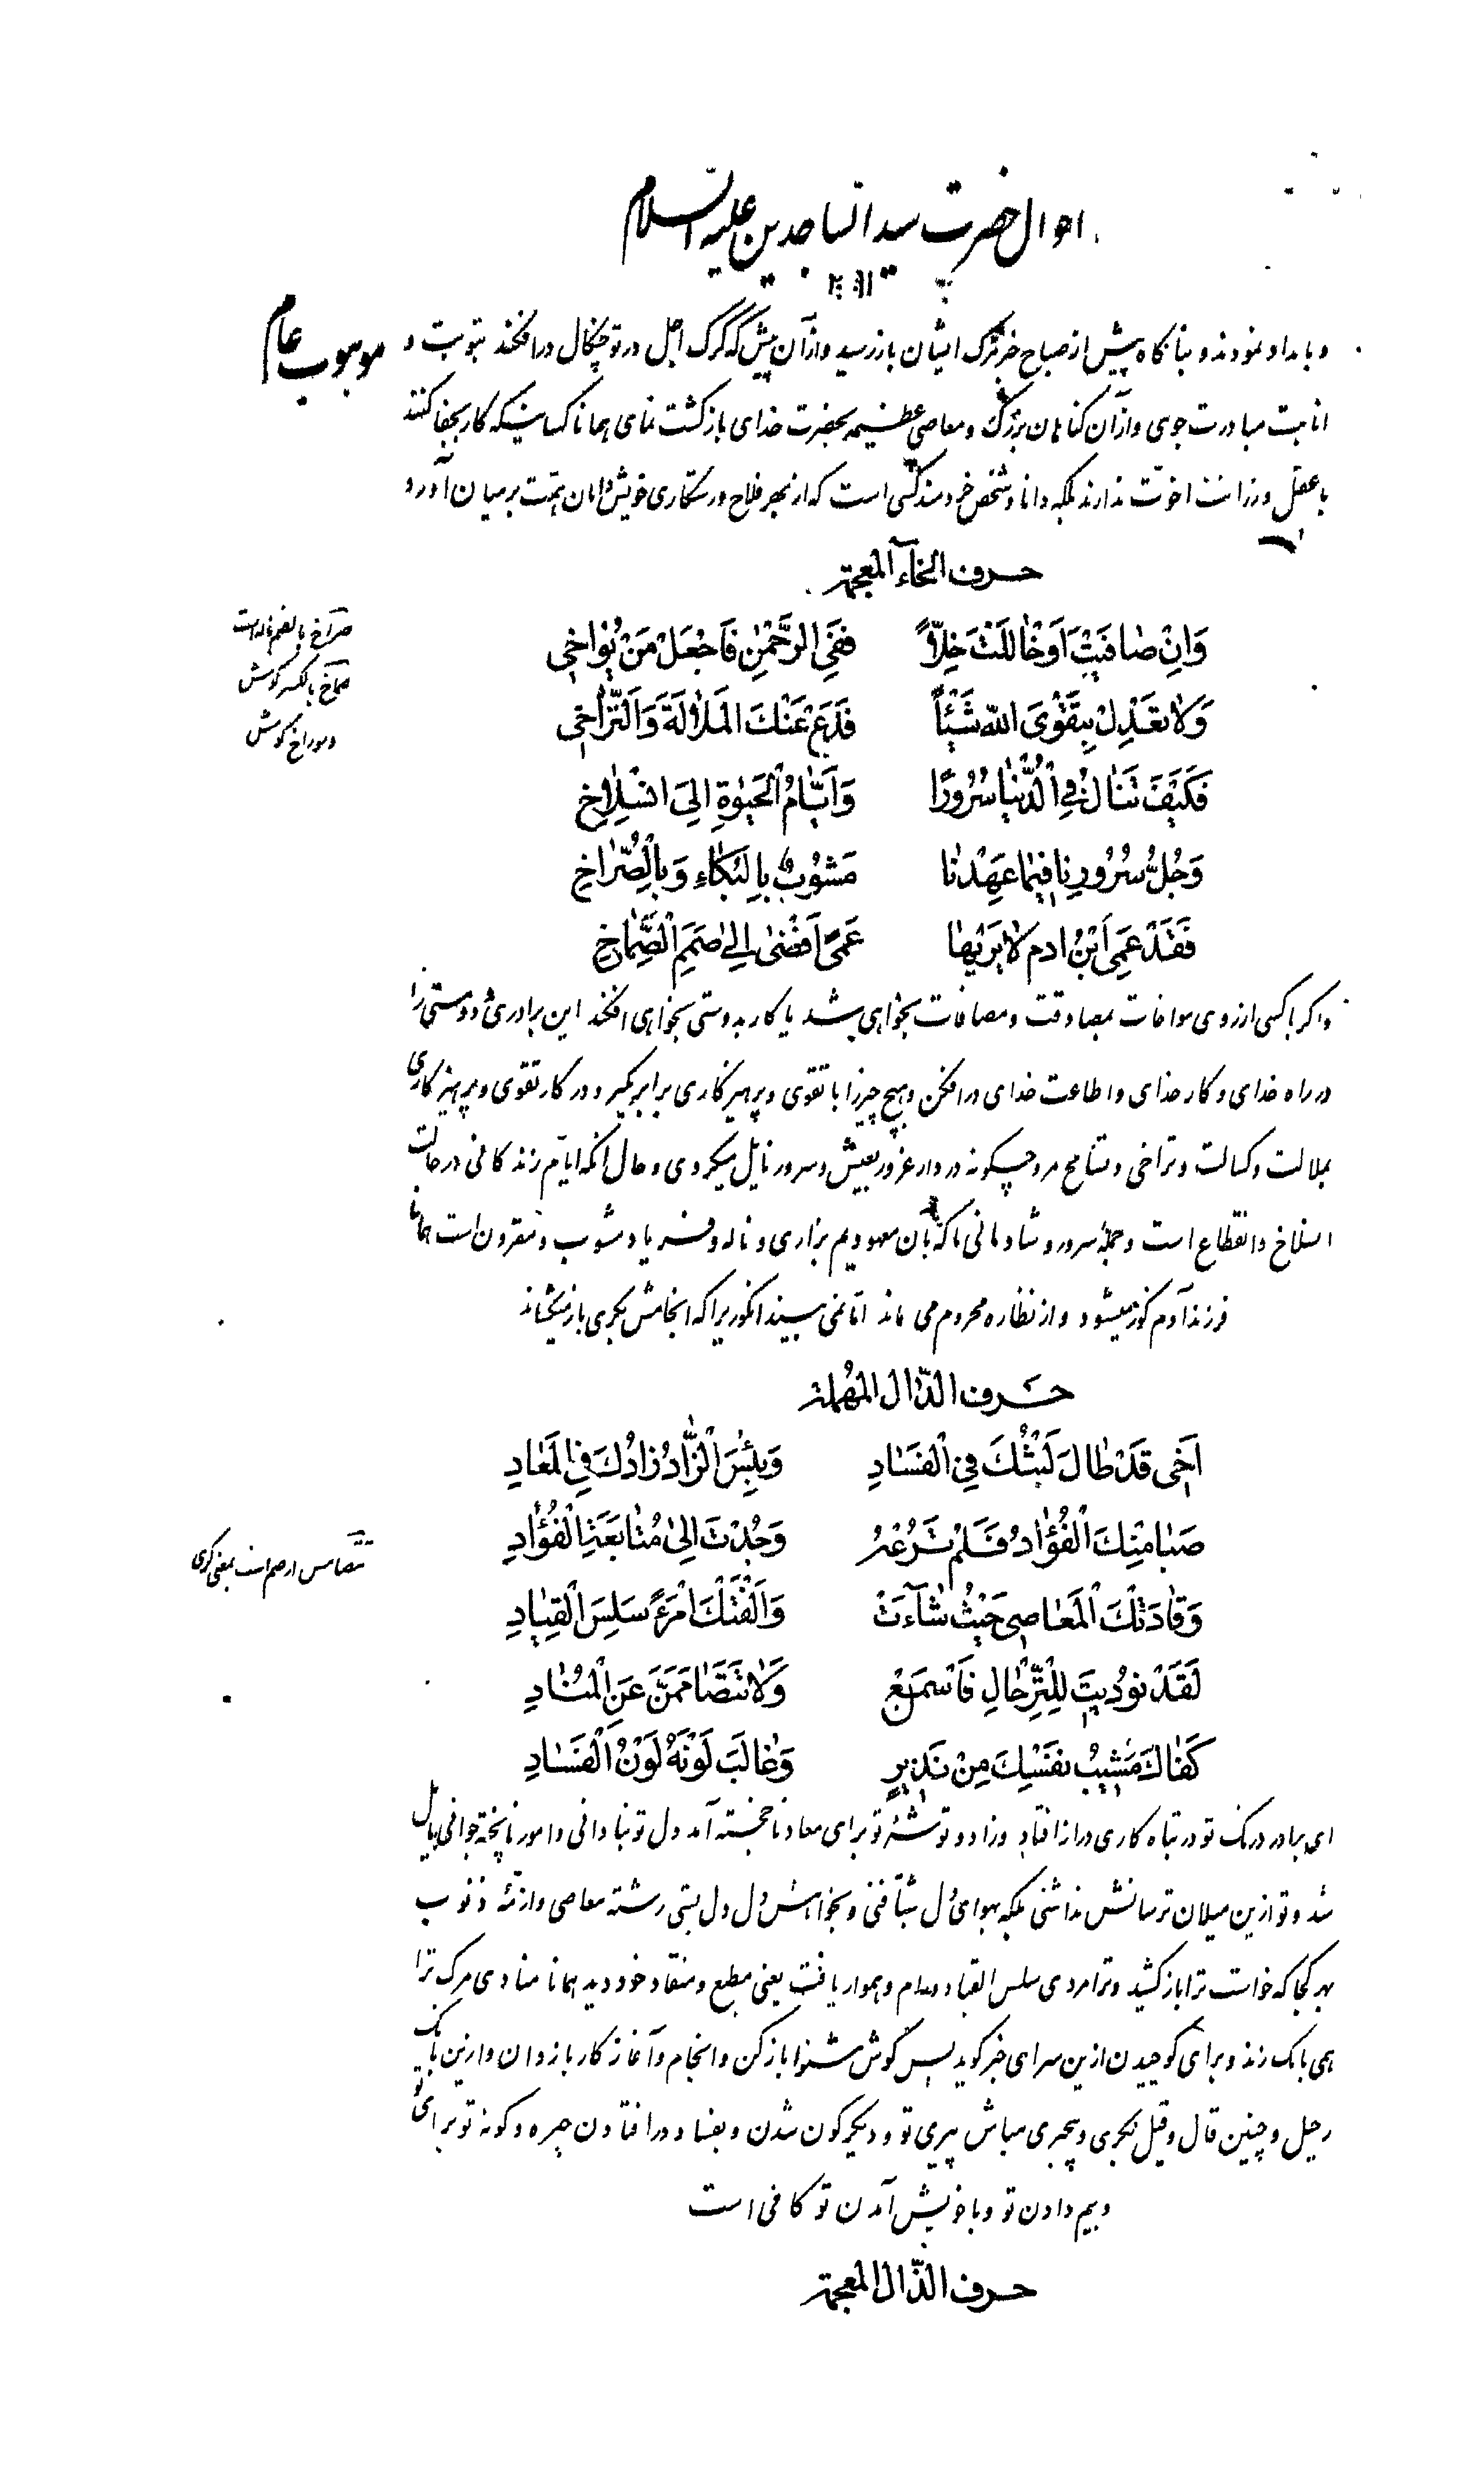 احوال حضرت سید الساجدین علیه السلام
موهوب عام
و بامداد نمودند و بناگاه پیش از صباح خبر مرگ ایشان باز رسید و از آن پیش که گرگ اجل در تو چنگال درافکند بتوبت و
انابت مبادرت جوی و از آن گناهان بزرگ و معاصی عظیمه بحضرت خدای بازگشت نمای همانا کسانیکه کار بجفا کنند
با عقل و رزانت اخوت ندارند بلکه دانا و شخص خردمند کسی است که از بهر فلاح و رستگاری خویش دامان همت بر میان آورد
حرف الخآء المعجمة
وَاِنْ صافَيْتَ اَوْ خالَلْتَ خِلّاً فَفِي الرَّحْمٰنِ فَاجْعَلْ مَنْ تُواخي
وَلا تَعْدِلْ بِتَقْوَى اللهِ شَيْئاً فَدَعْ عَنْكَ الْمَلالَةَ وَالتَّراخي
فَكَيْفَ تَنالُ فِي الدُّنْيا سُرُورًا وَاَيّامُ الْحَيٰوةِ اِلَى انْسِلاخِ
وَجُلُّ سُرُورِنا فيما عَهِدْنا مَشُوبٌ بِالْبُكاءِ وَبِالصُّراخِ
فَقَدْ عَمِيَ ابْنُ ادم لا يَرٰيها عَمًى اَفْضٰى اِلٰى صَمَمِ الصِّماخِ
صراخ بالضم ناله است
صماخ بالکسر گوش
و سوراخ گوش
و اگر با کسی از روی مواخات بمصادقت و مصافات بخواهی شد یا کار بدوستی بخواهی افکند این برادری و دوستی را
در راه خدای و کار خدای و اطاعت خدای درافکن و هیچ چیز را با تقوی و پرهیزکاری برابر مگیر و در کار تقوی و پرهیزکاری
بملالت و کسالت و تراخی و تسامح مرو چگونه در دار غرور بعیش و سرور نایل میگردی و حال آنکه ایام زندگانی در حالت
انسلاخ و انقطاع است و جمله سرور و شادمانی ما که بآن معهودیم بزاری و ناله و فریاد مشوب و مقرون است همانا
فرزند آدم کور میشود و از نظاره محروم می ماند اما نمی بیند آنکوری را که انجامش بکری باز میکشاند
حَرف الدّال المُهملة
اَخي قَدْ طالَ لَبْثُكَ فِي الْفَسادِ وَبِئْسَ الزّادُ زادُكَ فِي الْمَعادِ
صَبا مِنْكَ الْفُؤادُ فَلَمْ تَرُعْهُ وَجُدْتَ اِلى مُتابَعَةِ الْفُؤادِ
وَقادَتْكَ الْمَعاصي حَيْثُ شآءَتْ وَاَلْفَتْكَ امْرَءً سَلِسَ الْقِيادِ
لَقَدْ نُوديتَ لِلتِّرْحالِ فَاسْمَعْ وَلا تَتَصامَمَنَّ عَنِ الْمُنادِ
كَفاكَ مَشيبُ نَفْسِكَ مِنْ نَذيرٍ وَغالَبَ لَوْنَهُ لَوْنُ الْفَسادِ
تصامم از صم است بمعنی کری
ای برادر درنگ تو در تباه کاری دراز افتاد و زاد و توشهٔ تو برای معاد ناخجسته آمد دل تو بنادانی و امور ناپخته جوانی مایل
شد و تو ازین میلان ترسانش نداشتی بلکه بهوای دل شتافتی و بخواهش دل دل بستی رشته معاصی و ازمّه ذنوب
بهر کجا که خواست ترا باز کشید و ترا مردی سلس القیاد و رام و هموار یافت یعنی مطیع و منقاد خود دید همانا منادی مرگ ترا
همی بانک زند و برای کوچیدن ازین سرای خبر گوید پس گوش شنوا باز کن و انجام و آغاز کار باز دان و ازین بانک
رحیل و چنین قال و قیل بکری و بیخبری مباش پیری تو و دیگرگون شدن و بفساد درافتادن چهره و گونه تو برای تو
و بیم دادن تو و با خویش آمدن تو کافی است
حرف الذّال المعجمة